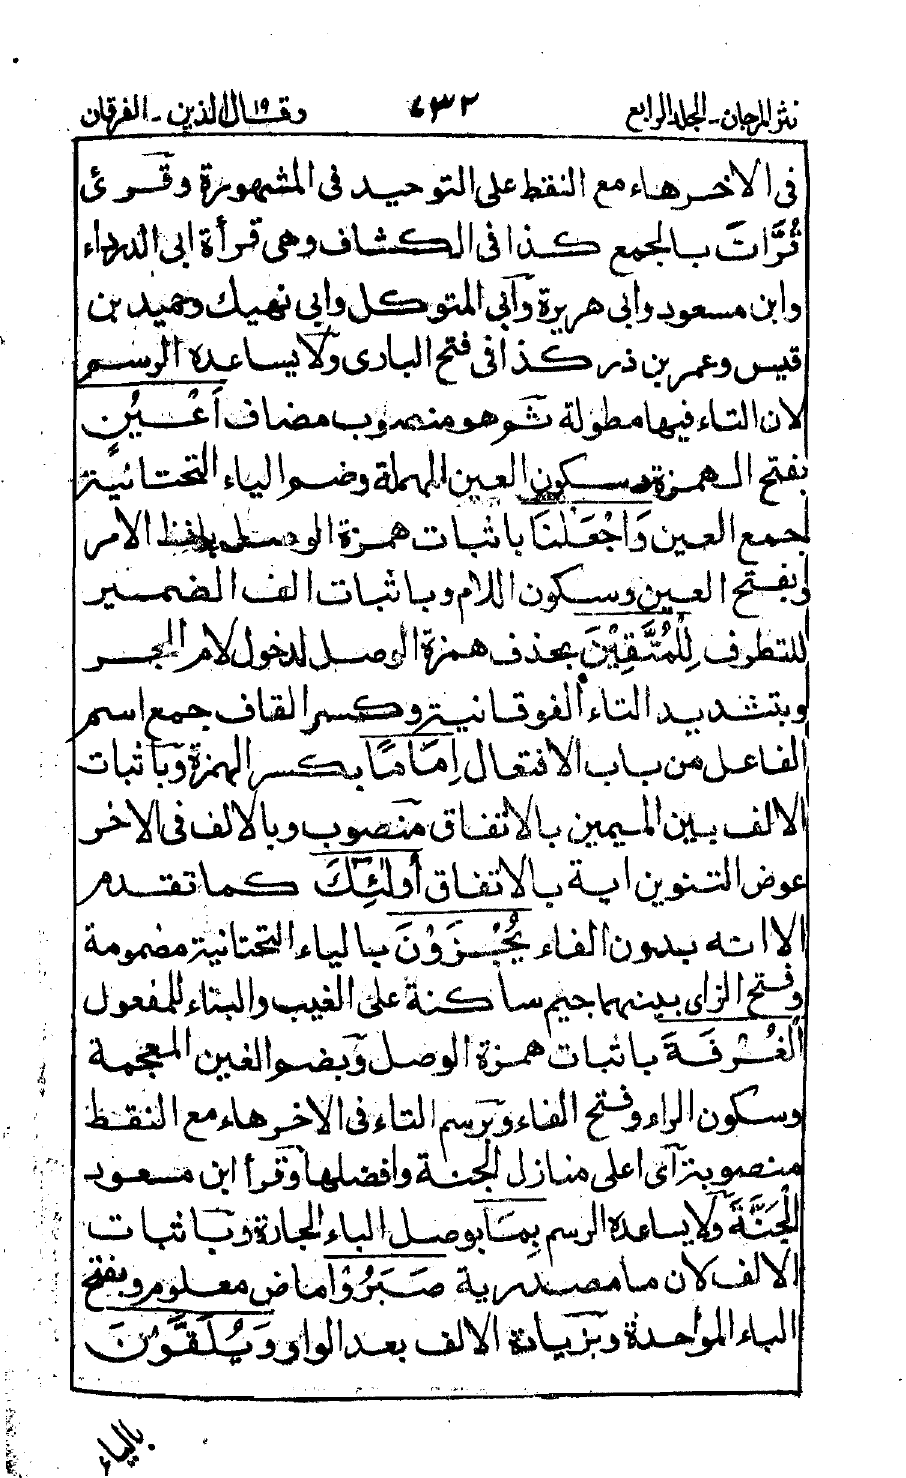 نثر المرجان - الجلد الرابع ٧٣٢ وقال الذين ١٩ - الفرقان
فى الاخر هاء مع النقط على التوحيد فى المشهورة وقرئ
قُرَّاتِ بالجمع كذا فى الكشاف وهى قرأة ابى الدرداء
وابن مسعود وابى هريرة وابى المتوكل وابى نهيك وحميد بن
قيس وعمر بن ذر كذا فى فتح البارى ولا يساعده الرسم
لان التاء فيها مطولة ثم هو منصوب مضاف اَعْيُنٍ
بفتح الهمزة وسكون العين المهملة وضم الياء التحتانية
لجمع العين وَاجْعَلْنَا باثبات همزة الوصل بلفظ الامر
وبفتح العين وسكون اللام وباثبات الف الضمير
للتطرف لِلْمُتَّقِيْنَ بحذف همزة الوصل لدخول لام الجر
وبتشديد التاء الفوقانية وكسر القاف جمع اسم
الفاعل من باب الافتعال اِمَامًا بكسر الهمزة وباثبات
الالف بين الميمين بالاتفاق منصوب وبالالف فى الاخر
عوض التنوين اية بالاتفاق أُولٰئِكَ كما تقدم
الا انه بدون الفاء يُجْزَوْنَ بالياء التحتانية مضمومة
وفتح الزاى بينهما جيم ساكنة على الغيب والبناء للمفعول
الْغُرْفَةَ باثبات همزة الوصل وبضم الغين المعجمة
وسكون الراء وفتح الفاء وبرسم التاء فى الاخر هاء مع النقط
منصوبة اى اعلى منازل الجنة وافضلها وقرأ ابن مسعود
الْجَنَّةَ ولا يساعده الرسم بِمَا بوصل الباء الجارة وباثبات
الالف لان ما مصدرية صَبَرُوْا ماض معلوم وبفتح
الباء الموحدة وبزيادة الالف بعد الواو وَيُلَقَّوْنَ
بالياء